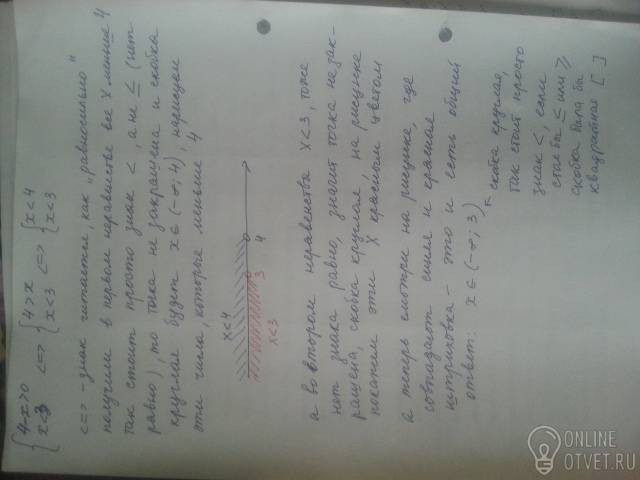 {4-x>0 <=> {4>x <=> {x<4
{x<3 <=> {x<3 <=> {x<3
<=> - знак читается, как "равносильно"
получили в первом неравенстве все X меньше 4
так стоит просто знак <, а не ≤ (нет
равно), то точка не закрашена и скобка
круглая будет x∈(-∞; 4), нарисуем
эти числа, которые меньше 4
x<4
3 4
x<3
а во втором неравенства X<3, тоже
нет знака равно, значит точка не зак-
рашена, скобка круглая, на рисунке
покажем эти X красным цветом
а теперь смотри на рисунке, где
совпадают синяя и красная
штриховка - это и есть общий
ответ: x∈(-∞; 3)
скобка круглая,
так стоит просто
знак <, если
стол бы ≤ или ≥
скобка была бы
квадратная [ ]
ONLINE
OTVET.RU